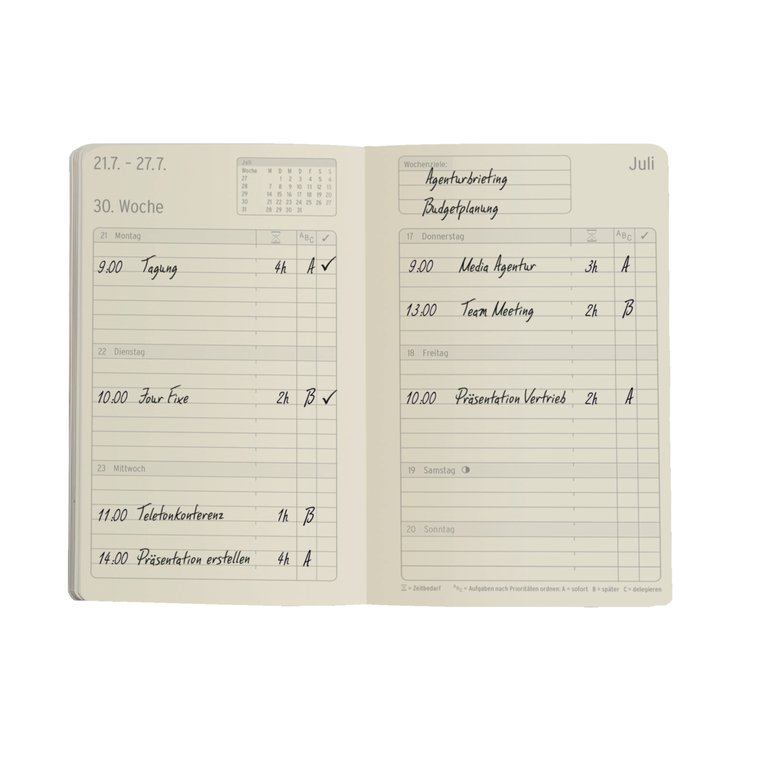 21.7. - 27.7.
30. Woche
Juli
Woche M D M D F S S
27 1 2 3 4 5 6
28 7 8 9 10 11 12 13
29 14 15 16 17 18 19 20
30 21 22 23 24 25 26 27
31 28 29 30 31
21 Montag ABC ✓
9:00 Tagung 4h A ✓
22 Dienstag
10:00 Jour Fixe 2h B ✓
23 Mittwoch
11:00 Telefonkonferenz 1h B
14:00 Präsentation erstellen 4h A
Wochenziele:
Agenturbriefing
Budgetplanung
Juli
17 Donnerstag ABC ✓
9:00 Media Agentur 3h A
13:00 Team Meeting 2h B
18 Freitag
10:00 Präsentation Vertrieb 2h A
19 Samstag
20 Sonntag
= Zeitbedarf ABC = Aufgaben nach Prioritäten ordnen: A = sofort B = später C = delegieren